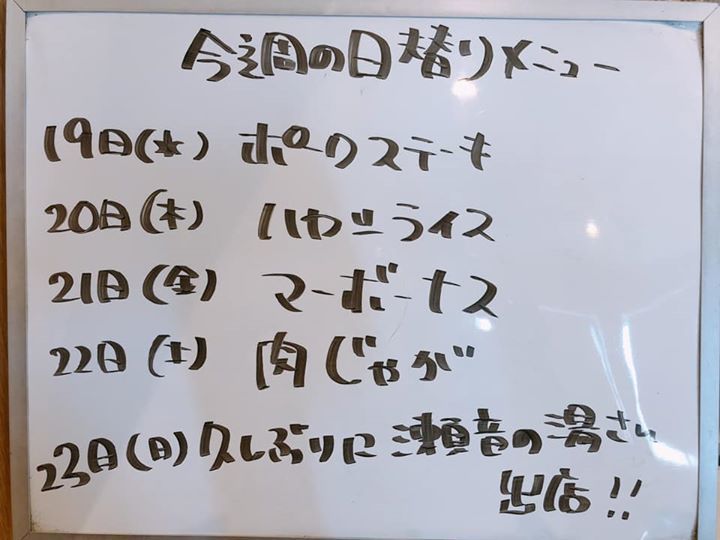 今週の日替りメニュー
19日(水) ポークステーキ
20日(木) ハヤシライス
21日(金) マーボーナス
22日(土) 肉じゃが
23日(日) 久しぶりに瀬音の湯さん
出店!!